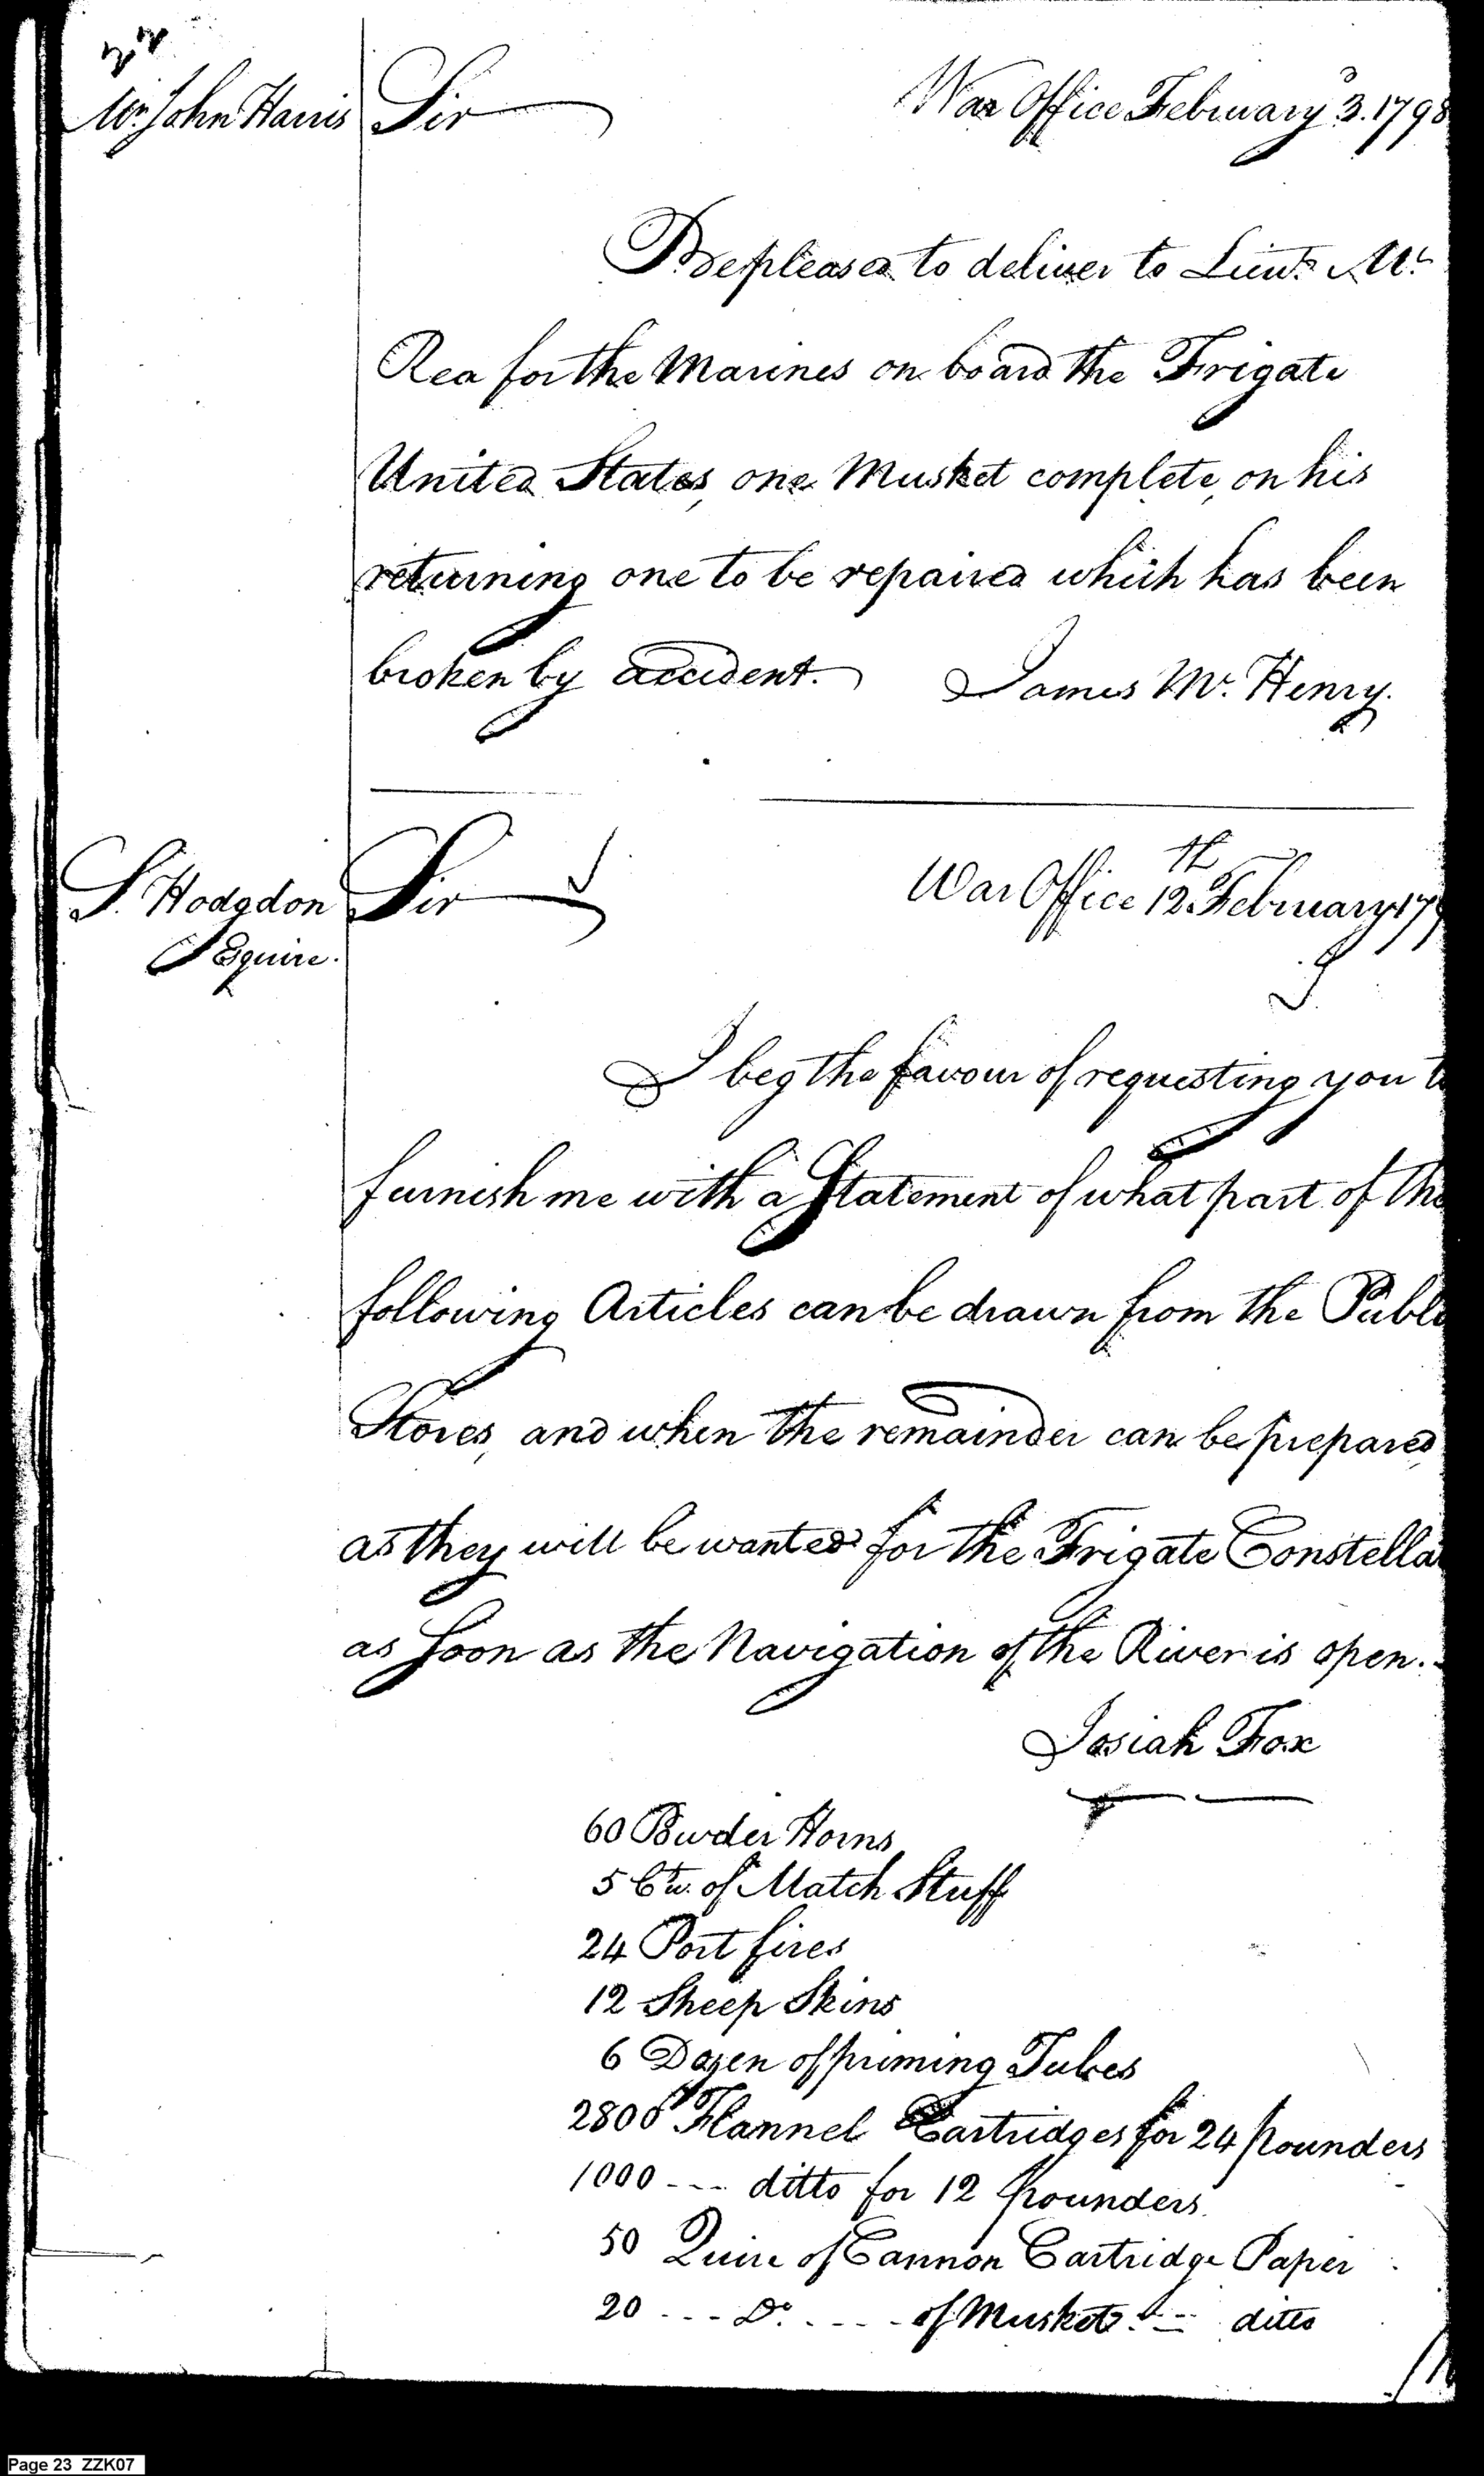 Mr. John Harris
Sir
War Office February 3. 1798
Be pleased to deliver to Lieut. Mc
Rea for the Marines on board the Frigate
United States, one Musket complete, on his
returning one to be repaired which has been
broken by accident.
James Mc. Henry.
S. Hodgdon
Esquire.
Sir
War Office 12th February 179
I beg the favour of requesting you to
furnish me with a Statement of what part of the
following Articles can be drawn from the Publi
Stores, and when the remainder can be prepared,
as they will be wanted for the Frigate Constella
as soon as the Navigation of the River is open.
Josiah Fox
60 Powder Horns
5 Ct.w. of Match Stuff
24 Port fires
12 Sheep Skins
6 Dozen of priming Tubes
2800 Flannel Cartridges for 24 pounders
1000 --- ditto for 12 pounders.
50 Quire of Cannon Cartridge Paper
20 --- Do. ---- of Musket --- ditto
Page 23 ZZK07